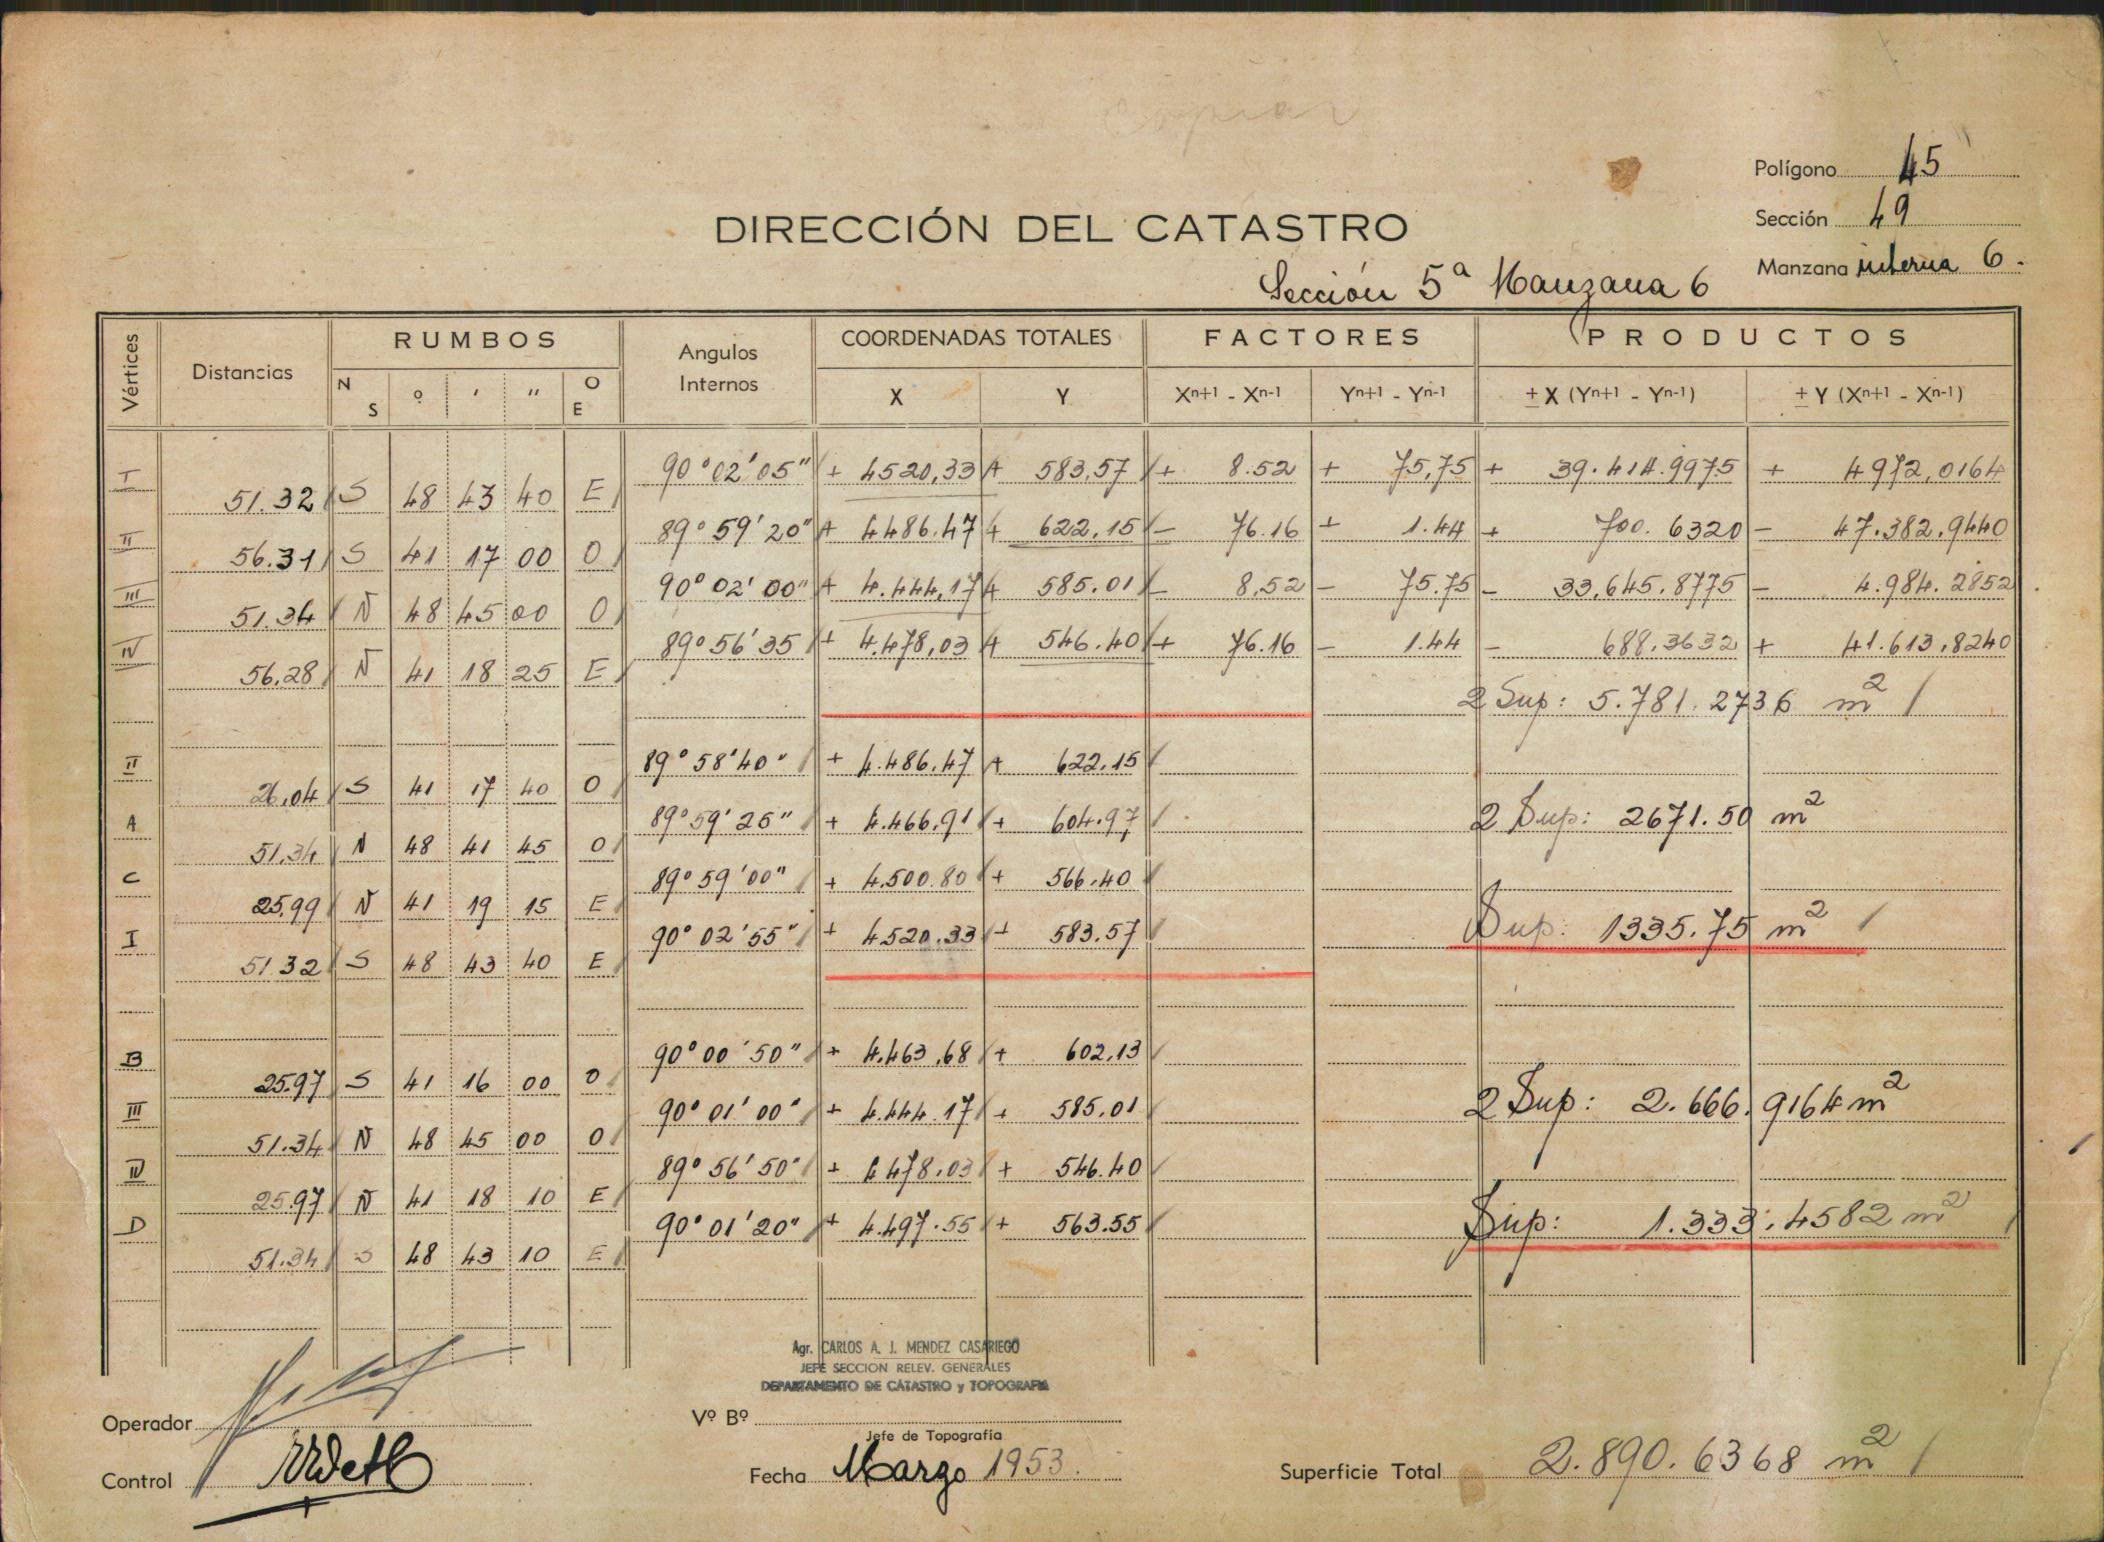 Copiar
Polígono 45
Sección 49
DIRECCIÓN DEL CATASTRO
Manzana interna 6.
Sección 5ª Manzana 6
Vértices Distancias RUMBOS Angulos Internos COORDENADAS TOTALES FACTORES PRODUCTOS
N S º ' " O E X Y Xn+1 - Xn-1 Yn+1 - Yn-1 ± X (Yn+1 - Yn-1) ± Y (Xn+1 - Xn-1)
I 90°02'05" + 4520,33 + 583,57 + 8.52 + 75,75 + 39.414.9975 + 4972,0164
51.32 S 48 43 40 E
II 89°59'20" + 4486.47 + 622,15 - 76.16 + 1.44 + 700.6320 - 47.382.9440
56.31 S 41 17 00 O
III 90°02'00" + 4.444,17 + 585.01 - 8,52 - 75.75 - 33,645.8775 - 4.984.2852
51.34 N 48 45 00 O
IV 89°56'35 + 4.478,03 + 546.40 + 76.16 - 1.44 - 688.3632 + 41.613,8240
56,28 N 41 18 25 E
2 Sup: 5.781.2736 m2
II 89°58'40" + 4.486.47 + 622.15
26,04 S 41 17 40 O
A 89°59'25" + 4.466,91 + 604.97 2 Sup: 2671.50 m2
51,34 N 48 41 45 O
C 89°59'00" + 4.500.80 + 566.40
25,99 N 41 19 15 E
I 90°02'55" + 4520.33 + 583.57 Sup: 1335.75 m2
51.32 S 48 43 40 E
B 90°00'50" + 4.463,68 + 602,13
25.97 S 41 16 00 O
III 90°01'00" + 4.444.17 + 585.01 2 Sup: 2.666.9164 m2
51.34 N 48 45 00 O
IV 89°56'50" + 4478.03 + 546.40
25.97 N 41 18 10 E
D 90°01'20" + 4.497.55 + 563.55 Sup: 1.333.4582 m2
51.34 S 48 43 10 E
Agr. CARLOS A. J. MENDEZ CASARIEGO
JEFE SECCION RELEV. GENERALES
DEPARTAMENTO DE CATASTRO y TOPOGRAFIA
Operador
Vº Bº
Jefe de Topografía
Control
Fecha Marzo 1953.
Superficie Total 2.890.6368 m2